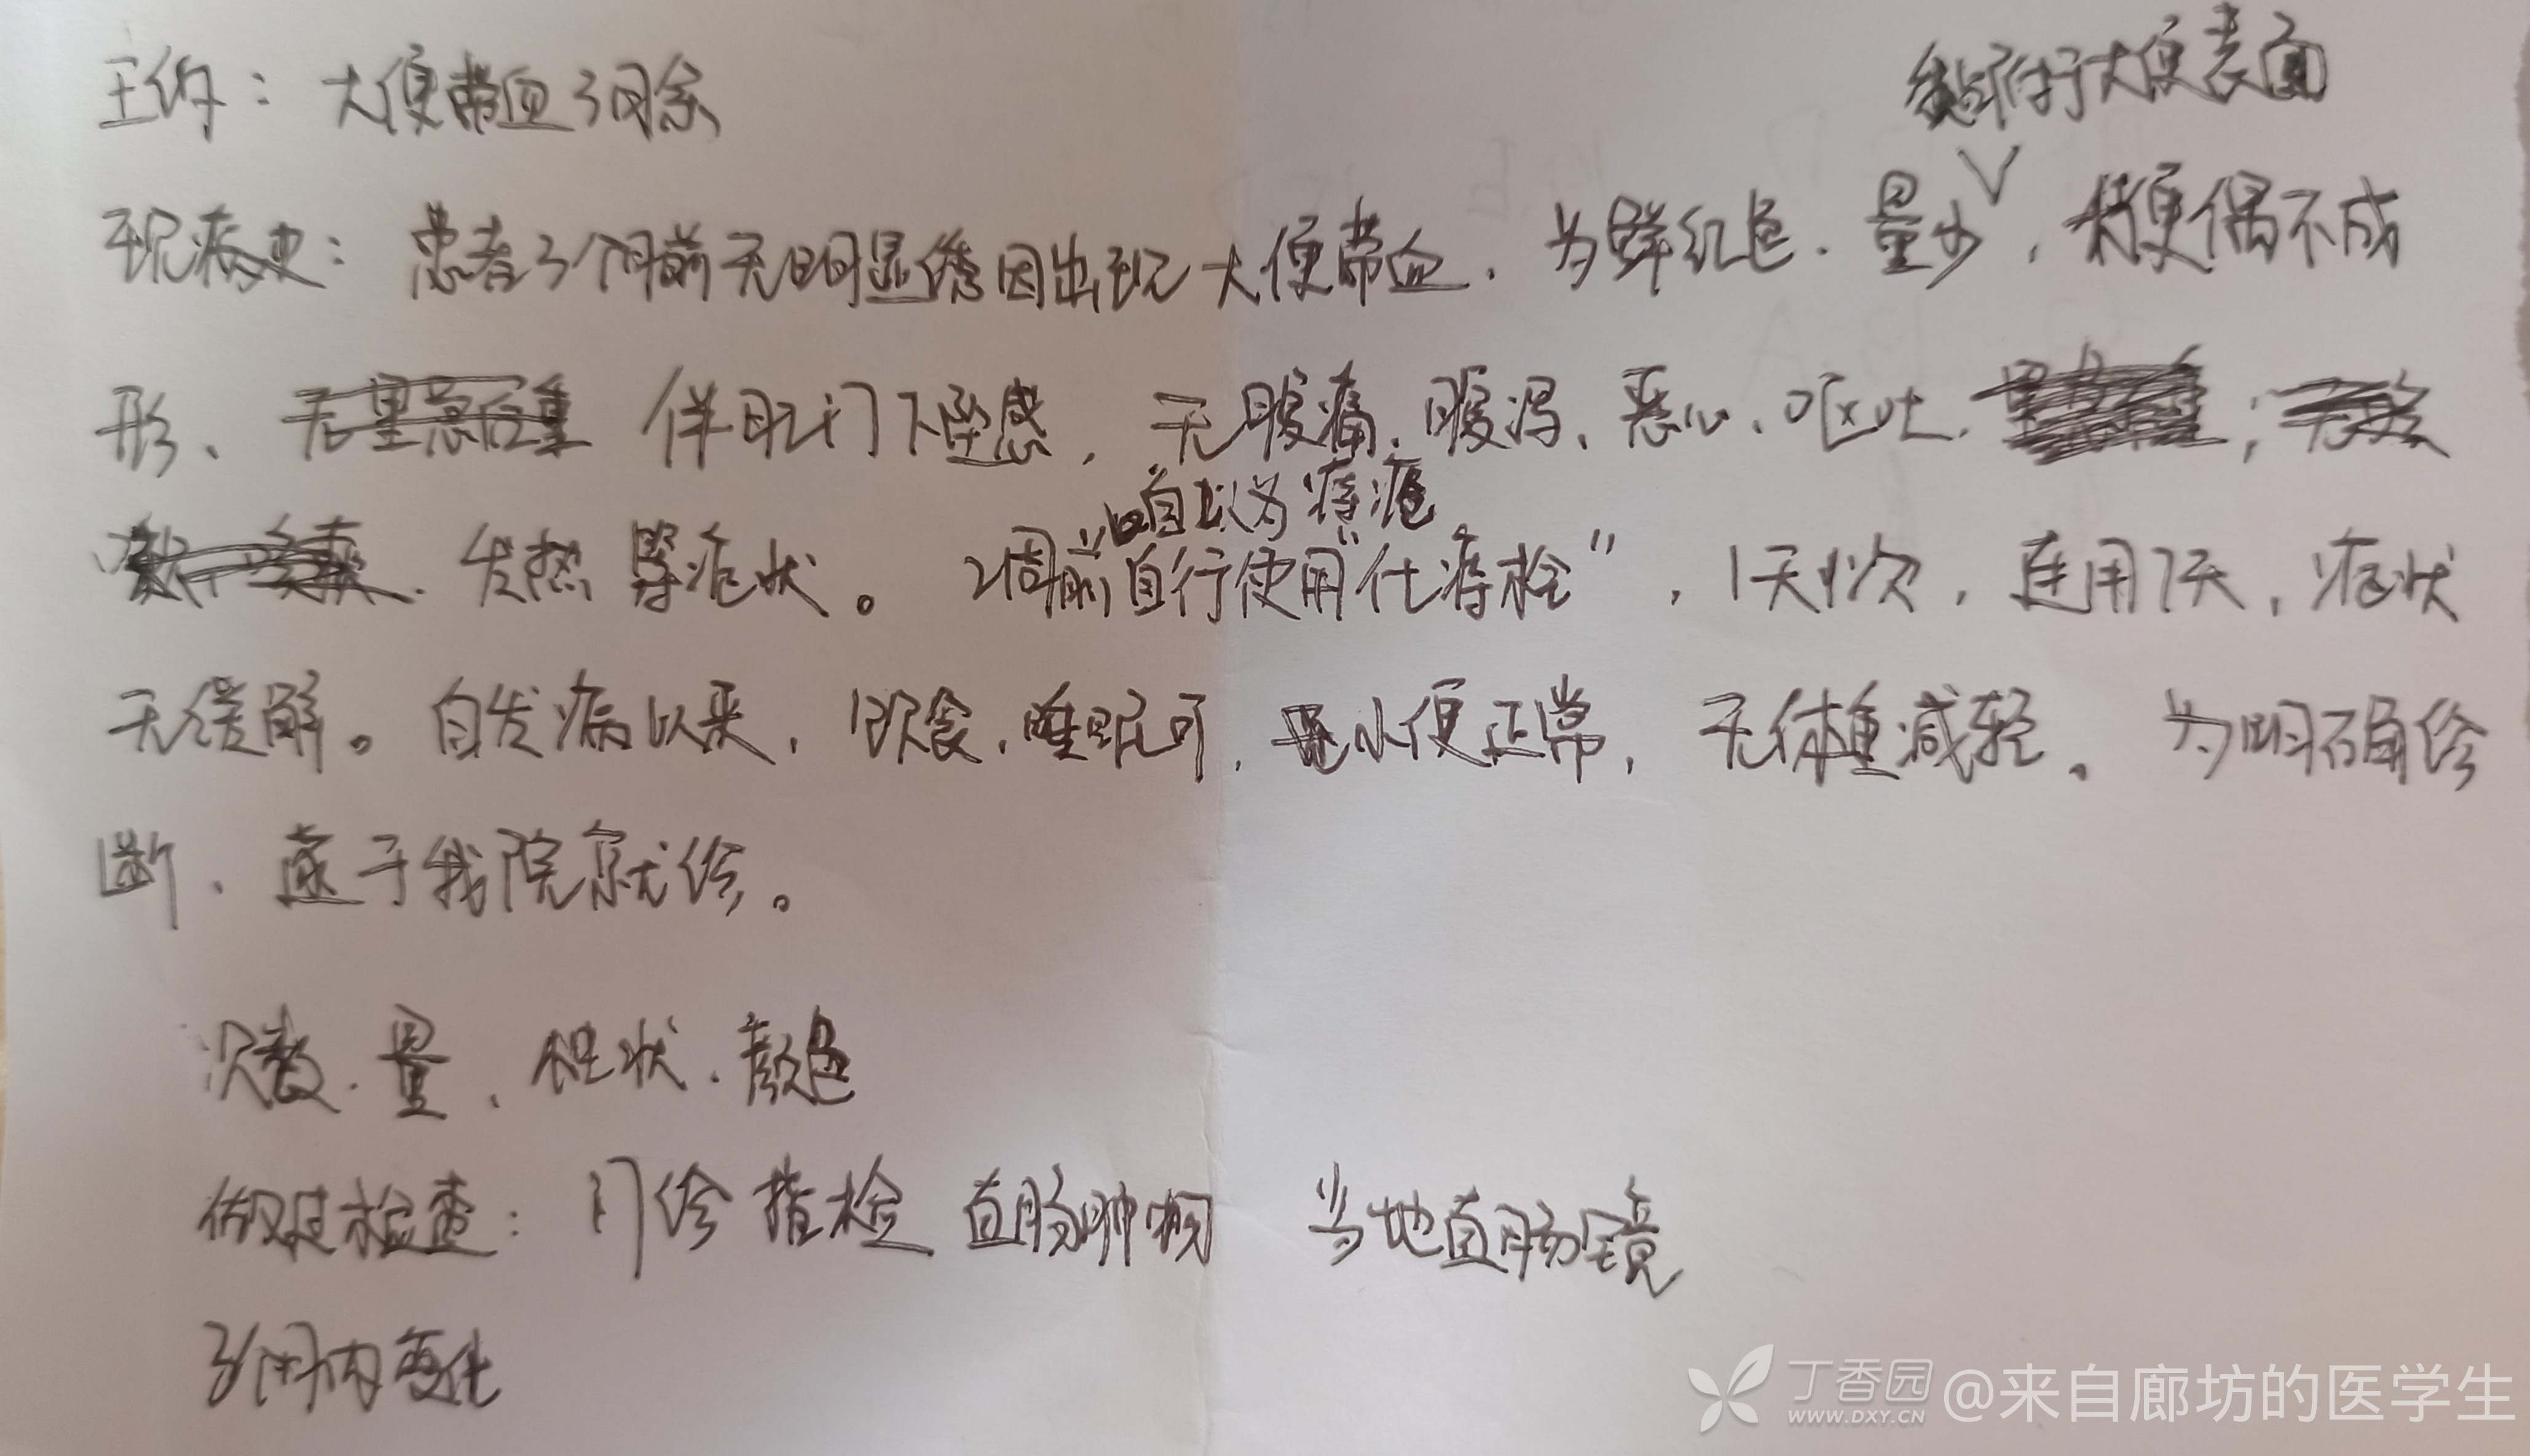 主诉：大便带血3月余
黏附于大便表面
现病史：患者3个月前无明显诱因出现大便带血，为鲜红色，量少，大便偶不成
形、无里急后重 伴肛门下坠感，无腹痛、腹泻、恶心、呕吐、；
、发热等症状。2周前自行使用“化痔栓”，1天1次，连用7天，症状
自以为痔疮
无缓解。自发病以来，饮食、睡眠可，小便正常，无体重减轻。为明确诊
断，遂于我院就诊。
次数、量、性状、颜色
做过检查：门诊指检 直肠肿物 当地直肠镜
3个月内变化
丁香园
WWW.DXY.CN
@来自廊坊的医学生